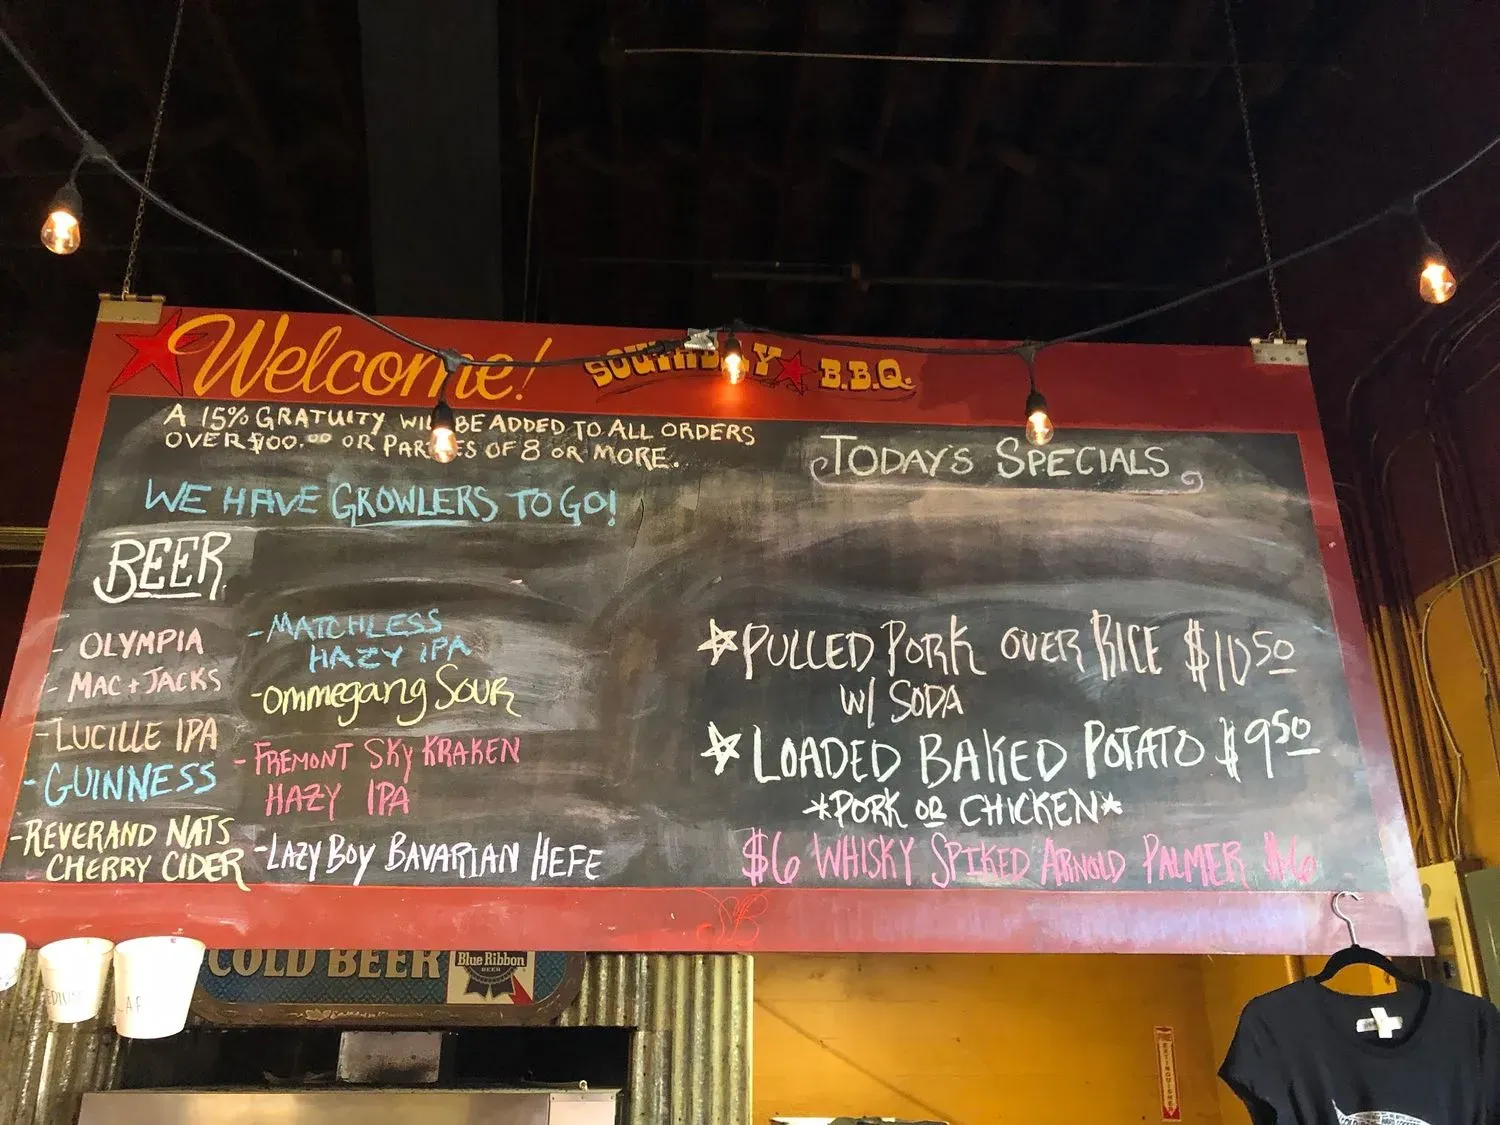 Welcome!
SOUTHBAY B.B.Q.
A 15% GRATUITY WILL BE ADDED TO ALL ORDERS
OVER $100.00 OR PARTIES OF 8 OR MORE.
WE HAVE GROWLERS TO GO!
BEER
- OLYMPIA
- MAC + JACKS
- LUCILLE IPA
- GUINNESS
- REVERAND NATS
CHERRY CIDER
- MATCHLESS
HAZY IPA
- OMMEGANG SOUR
- FREMONT SKY KRAKEN
HAZY IPA
- LAZY BOY BAVARIAN HEFE
TODAY'S SPECIALS
PULLED PORK OVER RICE $10 50
W/ SODA
LOADED BAKED POTATO $9 50
*PORK OR CHICKEN*
$6 WHISKY SPIKED ARNOLD PALMER $6
COLD BEER
Blue Ribbon
BEER
EXTINGUISHER